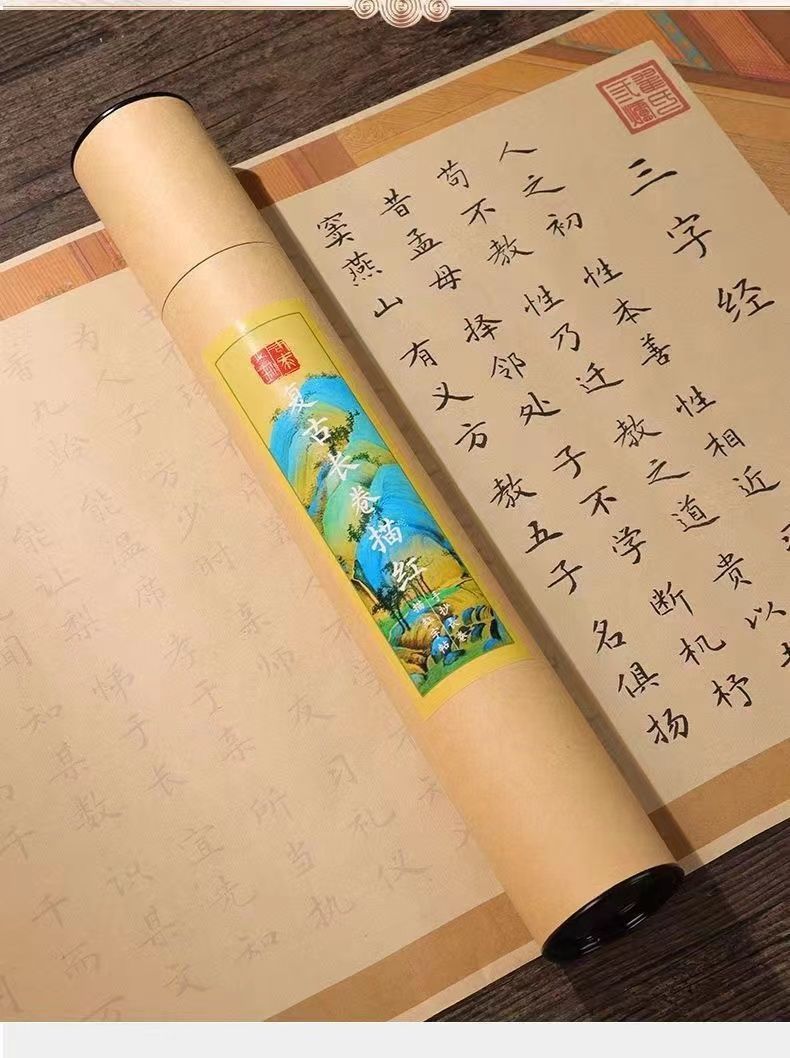 三字经
人之初性本善性相近
苟不教性乃迁教之道贵以
昔孟母择邻处子不学断机杼
窦燕山有义方教五子名俱扬
复古长卷描红
为人子方少时亲师友习礼仪
九龄能温席孝于亲所当执
能让梨悌于长宜先知
闻知某数识某文
千千而万